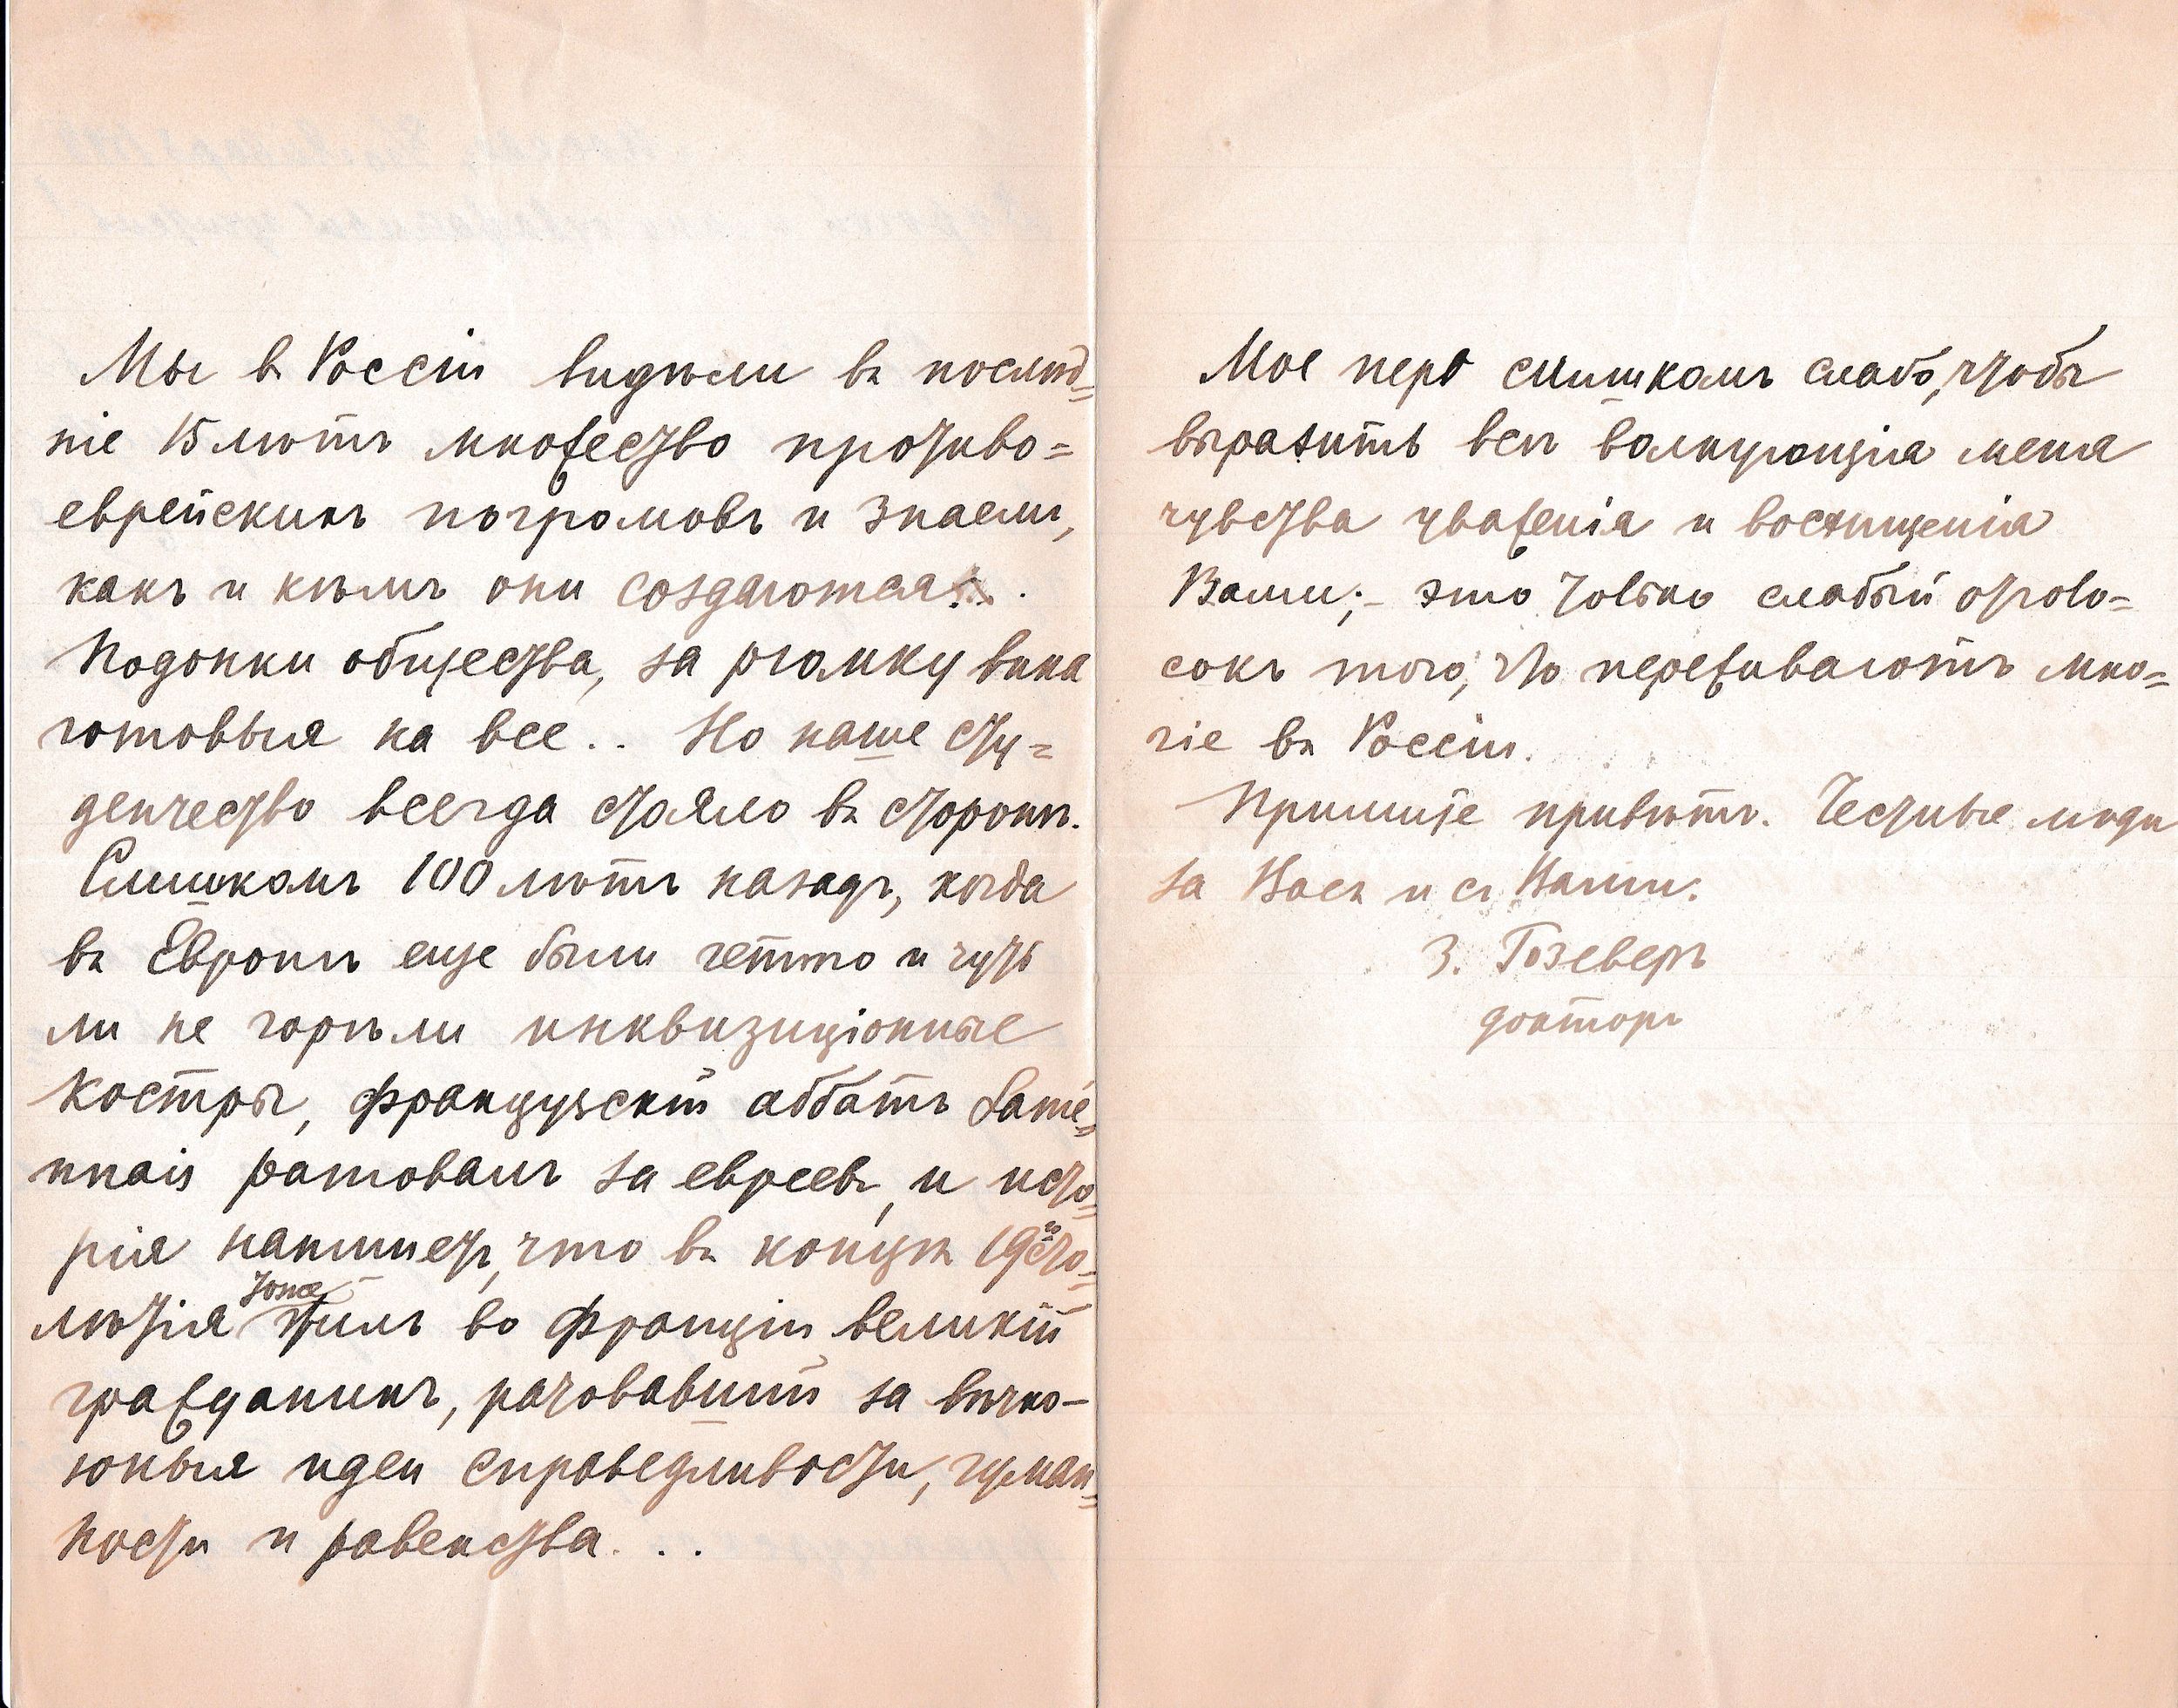 Мы въ Россіи видѣли въ послѣд=
ніе 15 лѣтъ множество противо=
еврейскихъ погромовъ и знаемъ,
какъ и кѣмъ они создаются...
Подонки общества, за рюмку вина
готовыя на все.. Но наше сту=
денчество всегда стояло въ сторонѣ.
Слишкомъ 100 лѣтъ назадъ, когда
въ Европѣ еще были гетто и чуть
ли не горѣли инквизиціонные
костры, французскій аббатъ Lamé=
nnais ратовалъ за евреевъ, и исто=
рія напишетъ, что въ концѣ 19го сто=
лѣтія тоже жилъ во Франціи великій
гражданинъ, ратовавшій за вѣчно-
юныя идеи справедливости, гуман=
ности и равенства...
Мое перо слишкомъ слабо, чтобы
выразить всѣ волнующія меня
чувства уваженія и восхищенія
Вами;- это только слабый отголо=
сокъ того, что переживаютъ мно=
гіе въ Россіи.
Примите привѣтъ. Честные люди
за Васъ и съ Вами.
З. Гозеверъ
докторъ